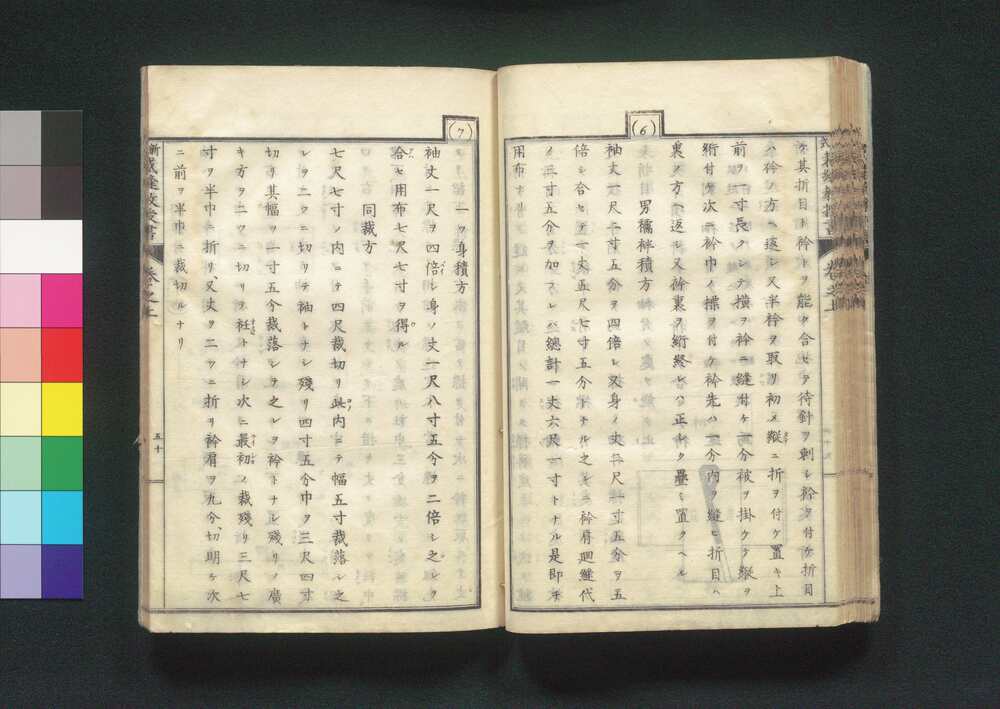 ケ其折目ト衿トヲ能ク合セテ待針ヲ刺シ衿タ付ケ折目
ハ衿ノ方ヘ返シ又半衿ヲ取リ初メ縱ニ折ヲ付ケ置キ上
前ヲ寸長クシテ横ヲ衿ニ縫付ケ分被ヲ掛ケテ縱ヲ
絎付ケ次ニ衿巾ノ標ヲ付ケ衿先ハ二分内ヲ縫ヒ折目ハ
裏ノ方ヘ返シ又衿裏ヲ絎終ヒハ正シク疊ミ置クヘル
(6)
男襦袢積方
袖丈一尺二寸五分ヲ四倍シ又身ノ丈二尺一寸五分ヲ五
倍シ合セテ一丈五尺七寸五分半ナル之ヒニ衿肩廻縫代
ノ三寸五分ヲ加フレバ總計一丈六尺一寸トナル是即チ
用布ナリ
(7)
一つ身積方
袖丈一尺ヲ四倍シ身ノ丈一尺八寸五分ヲ二倍シ之レヲ
合セ用布七尺七寸ヲ得ル
同裁方
七尺七寸ノ内ニテ四尺裁切リ此内ニテ幅五寸裁落シ之
レヲ二ツニ切リテ袖トナシ殘リ四寸五分巾ヲ三尺四寸
切リ其幅ヲ一寸五分裁落シテ之レヲ衿トナシ殘リノ廣
キ方ヲ二ツニ切リテ衽トナシ次ニ最初ノ裁殘リ三尺七
寸ヲ半巾ニ折リ又丈ヲ二ツニ折リ衿肩ヲ九分切明ケ次
ニ前ヲ半巾ニ裁切ルナリ
新裁縫教授書
卷之上
五十